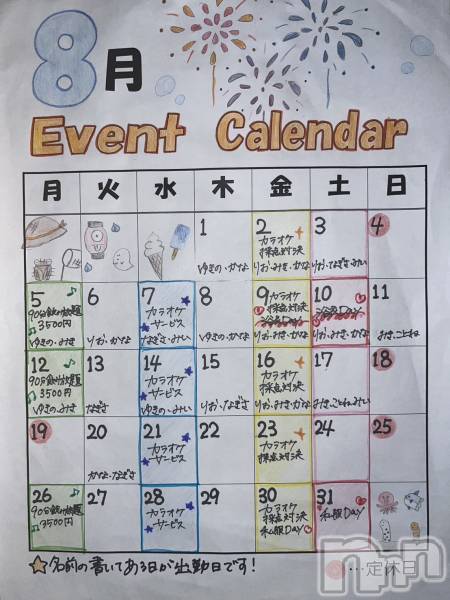 8月
Event Calendar
月 火 水 木 金 土 日
1
ゆきの・かな
2
カラオケ
採点対決
りお・みき・かな
3
りお・なぎさ・みい
4
5
90分飲み放題
3500円
ゆきの・みき
6
りお・かな
7
カラオケ
サービス
なぎさ・みい
8
ゆきの・かな
9
カラオケ
採点対決
浴衣Day
りお・みき・かな
10
浴衣DAY
りお・みき・かな
11
みき・ことね
12
90分飲み放題
3500円
ゆきの・みき
13
なぎさ
14
カラオケ
サービス
ゆきの・みい
15
りお・なぎさ
16
カラオケ
採点対決
りお・みき・かな
17
みき・ことね・みい
18
19
20
かな・なぎさ
21
カラオケ
サービス
22
23
カラオケ
採点対決
24
25
26
90分飲み放題
3500円
27
28
カラオケ
サービス
29
30
カラオケ
採点対決
私服DAY
31
私服DAY
☆名前の書いてある日が出勤日です!
●…定休日